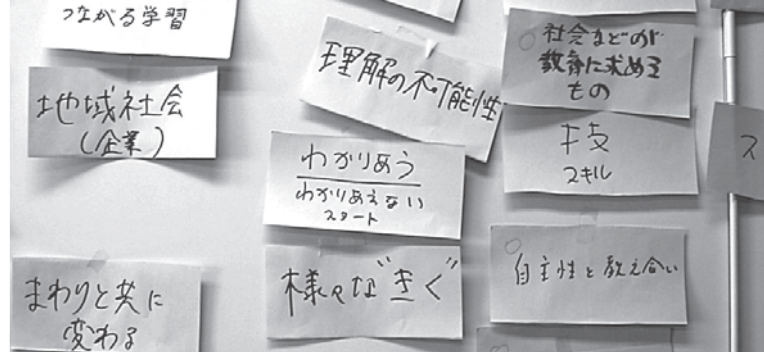 つながる学習
地域社会
(企業)
まわりと共に
変わる
理解の不可能性
わかりあう
わかりあえない
スタート
様々な
社会などのが
教育に求める
もの
技
スキル
自主性と教え合い
ス